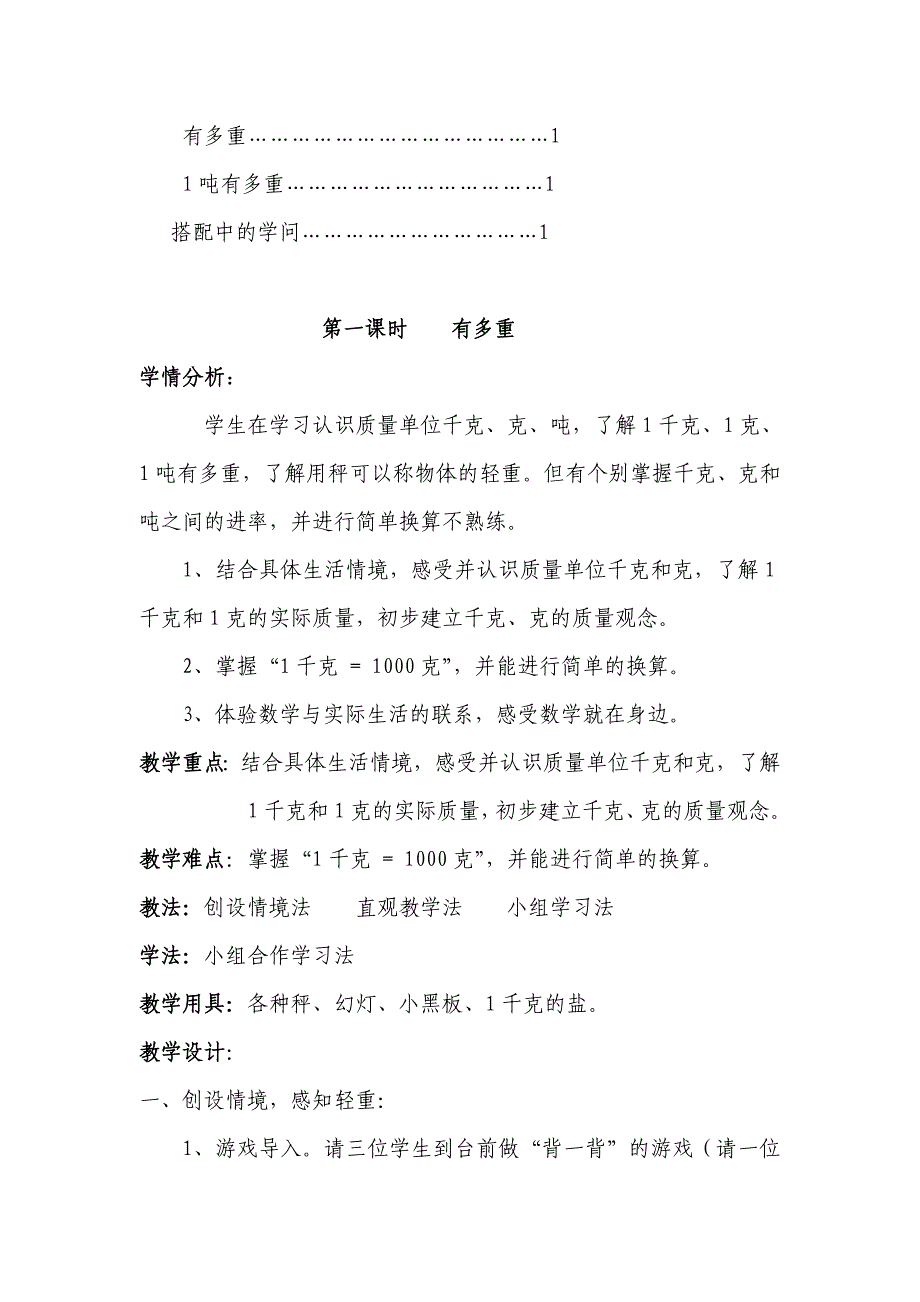 有多重……………………………………1
1吨有多重………………………………1
搭配中的学问……………………………1
第一课时　　有多重
学情分析：
学生在学习认识质量单位千克、克、吨，了解1千克、1克、
1吨有多重，了解用秤可以称物体的轻重。但有个别掌握千克、克和
吨之间的进率，并进行简单换算不熟练。
1、结合具体生活情境，感受并认识质量单位千克和克，了解1
千克和1克的实际质量，初步建立千克、克的质量观念。
2、掌握“1千克 = 1000克”，并能进行简单的换算。
3、体验数学与实际生活的联系，感受数学就在身边。
教学重点：结合具体生活情境，感受并认识质量单位千克和克，了解
1千克和1克的实际质量，初步建立千克、克的质量观念。
教学难点：掌握“1千克 = 1000克”，并能进行简单的换算。
教法：创设情境法　　直观教学法　　小组学习法
学法：小组合作学习法
教学用具：各种秤、幻灯、小黑板、1千克的盐。
教学设计：
一、创设情境，感知轻重：
1、游戏导入。请三位学生到台前做“背一背”的游戏（请一位